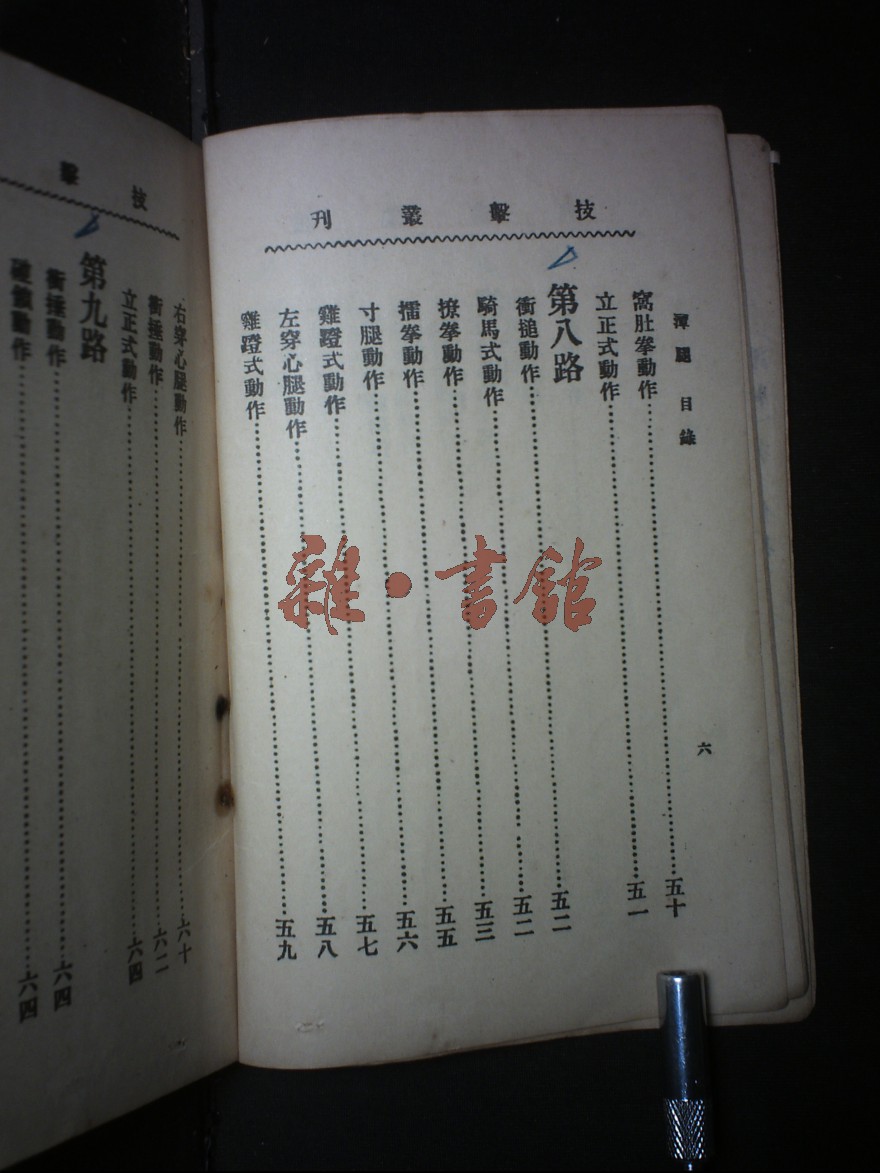 技擊叢刊
潭腿 目錄 六
窩肚拳動作……五十
立正式動作……五一
第八路
衝搥動作……五二
騎馬式動作……五二
撩拳動作……五三
擂拳動作……五五
寸腿動作……五六
雞蹬式動作……五七
左穿心腿動作……五八
雞蹬式動作……五九
雜•書館
技擊
右穿心腿動作……六十
衝捶動作……六二
立正式動作……六四
第九路
衝捶動作……六四
動作……六四